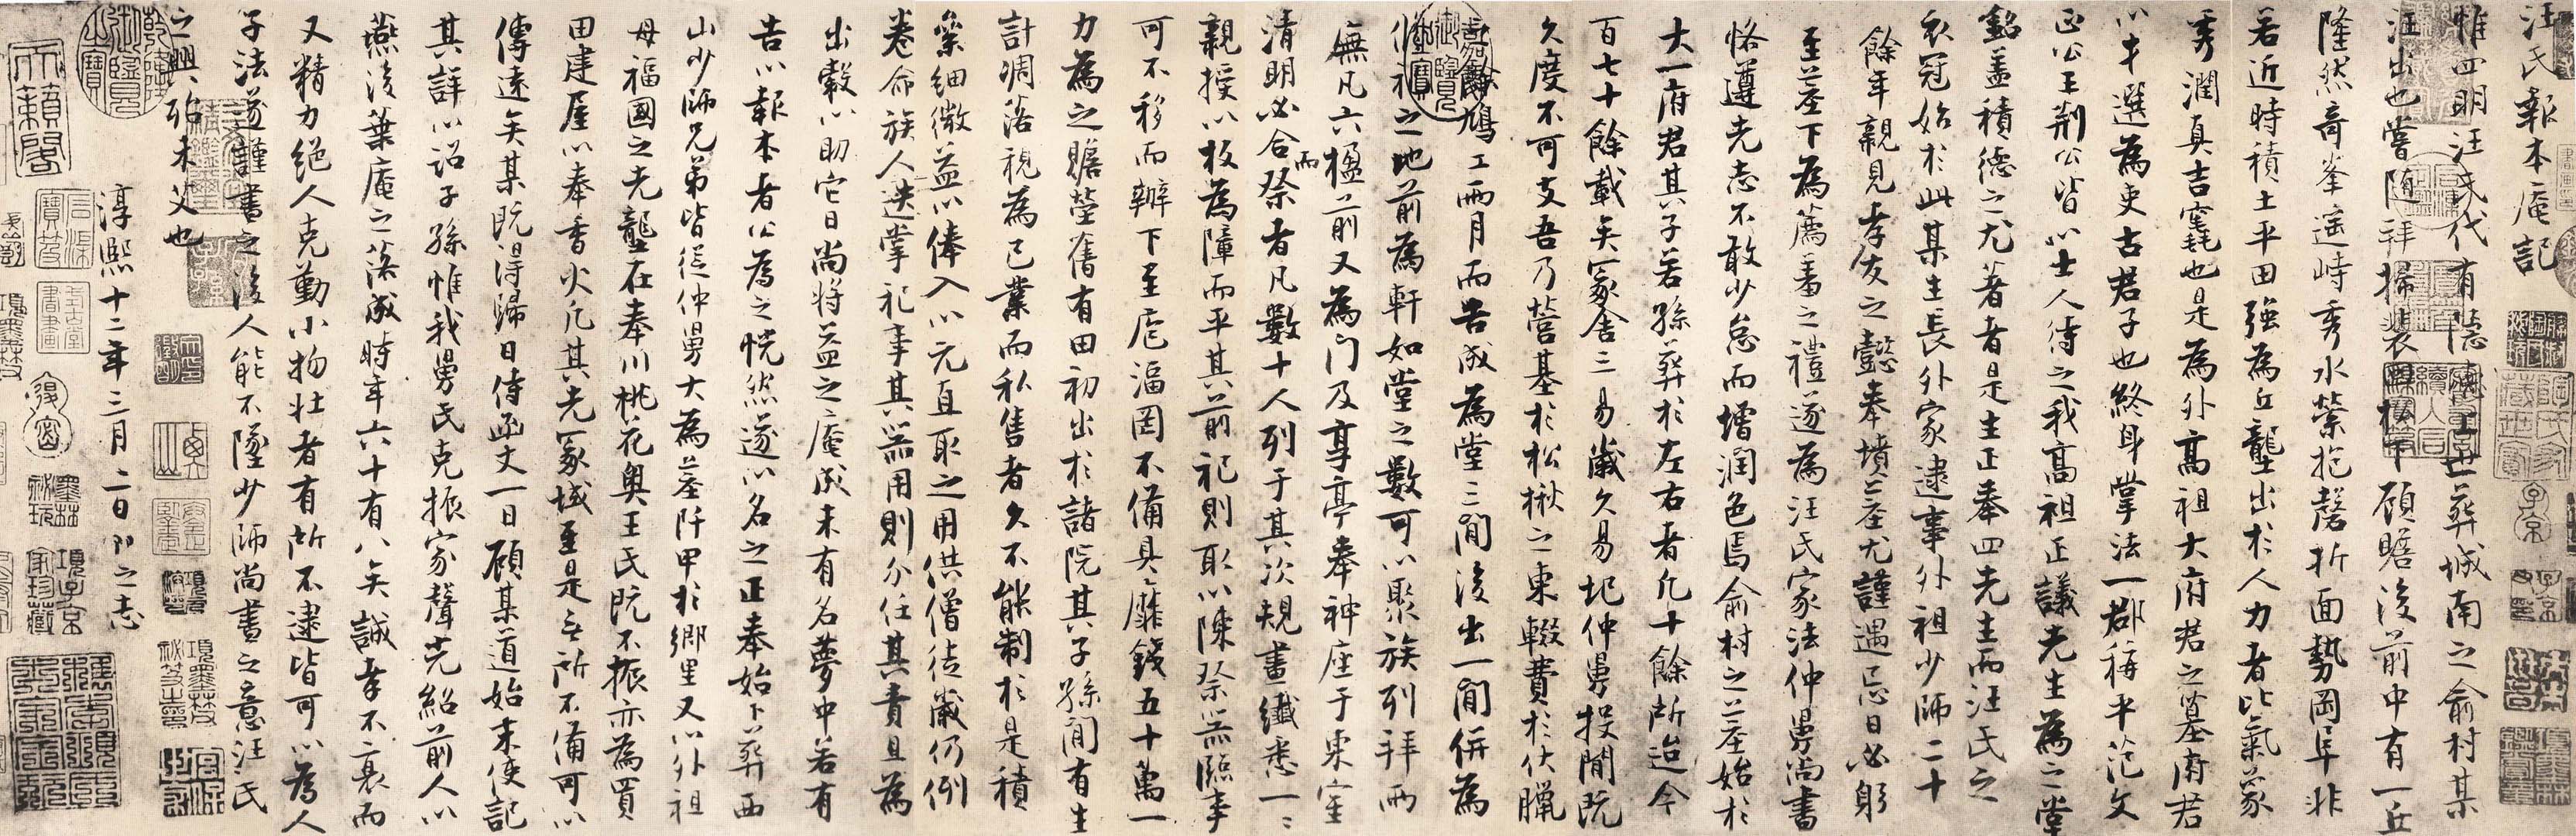 汪氏報本庵記
惟四明汪氏代有隱德上世葬城南之俞村某
汪出也嘗随拜掃裴回松下顧瞻後前中有一丘
隆然奇峯遥峙秀水縈抱磬折面勢岡阜非
若近時積土平田強為丘壟出於人力者比氣象
秀潤真吉窀也是為外高祖大府君之墓府君
以才選為吏古君子也終身掌法一郡稱平范文
正公王荊公皆以士人待之我高祖正議先生為之堂
銘蓋積德之尤著者是生正奉四先生而汪氏之
衣冠始於此某生長外家逮事外祖少師二十
餘年親見孝友之懿奉墳荃尤謹遇忌日必躬
至荃下為薦羞之禮遂為汪氏家法仲舅尚書
恪遵先志不敢少怠而增潤色焉俞村之荃始於
大一府君其子若孫葬於左右者凡十餘所迨今
百七十餘載矣冢舍三易歲久易圮仲舅投閒既
久度不可支吾乃營基於松楸之東輟費於伏臘
之餘鳩工兩月而告成為堂三間後出一間併為
僧祠之地前為軒如堂之數可以聚族列拜兩
廡凡六楹前又為門及享亭奉神座于東室
清明必合而祭者凡數十人列于其次規畫纖悉一二
親授以板為障而平其前祀則取以陳祭器臨事
可不移而辦下至庖湢罔不備具靡錢五十萬一
力為之贍塋舊有田初出於諸院其子孫間有生
計凋落視為己業而私售者久不能制於是積
絫細微益以俸入以元直取之用供僧徒歲仍例
卷命族人迭掌祀事其器用則分任其責且為
出穀以助它日尚將益之庵成未有名夢中若有
告以報本者公為之怳然遂以名之正奉始卜葬西
山少師兄弟皆從仲舅大為荃阡甲於鄉里又以外祖
母福國之先壟在奉川桃花奥王氏既不振亦為買
田建屋以奉香火凡其先冢域至是无所不備可以
傳遠矣某既得歸日侍函丈一日顧某道始末使記
其詳以詔子孫惟我舅氏克振家聲光紹前人以
燕後葉庵之落成時年六十有八矣誠孝不衰而
又精力絕人克勤小物壯者有所不逮皆可以為人
子法遂謹書之後人能不墜少師尚書之意汪氏
之興殆未艾也
淳熙十二年三月二日即之志